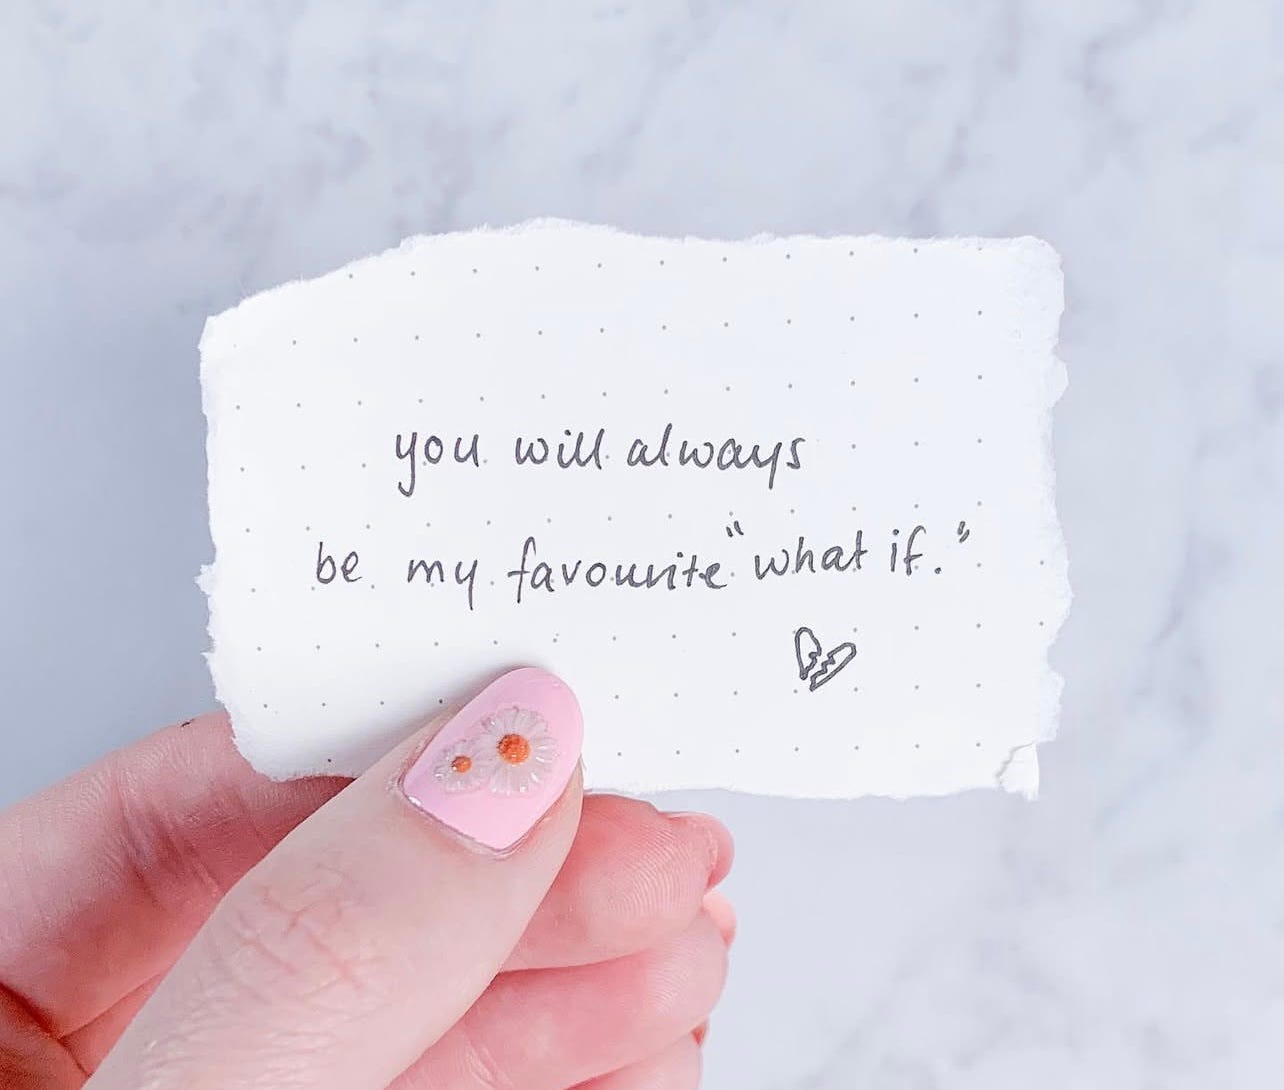 you will always
be my favourite "what if."